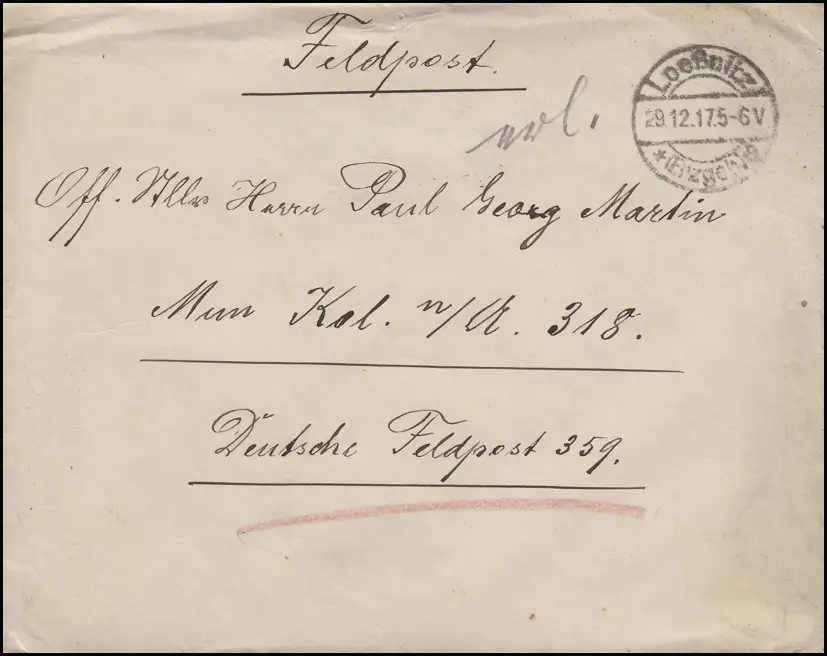 Feldpost.
erl.
Loeßnitz
29.12.17.5-6V
*(Erzgeb.)b
Off. Stllv Herrn Paul Georg Martin
Mun Kol. n/A. 318.
Deutsche Feldpost 359.